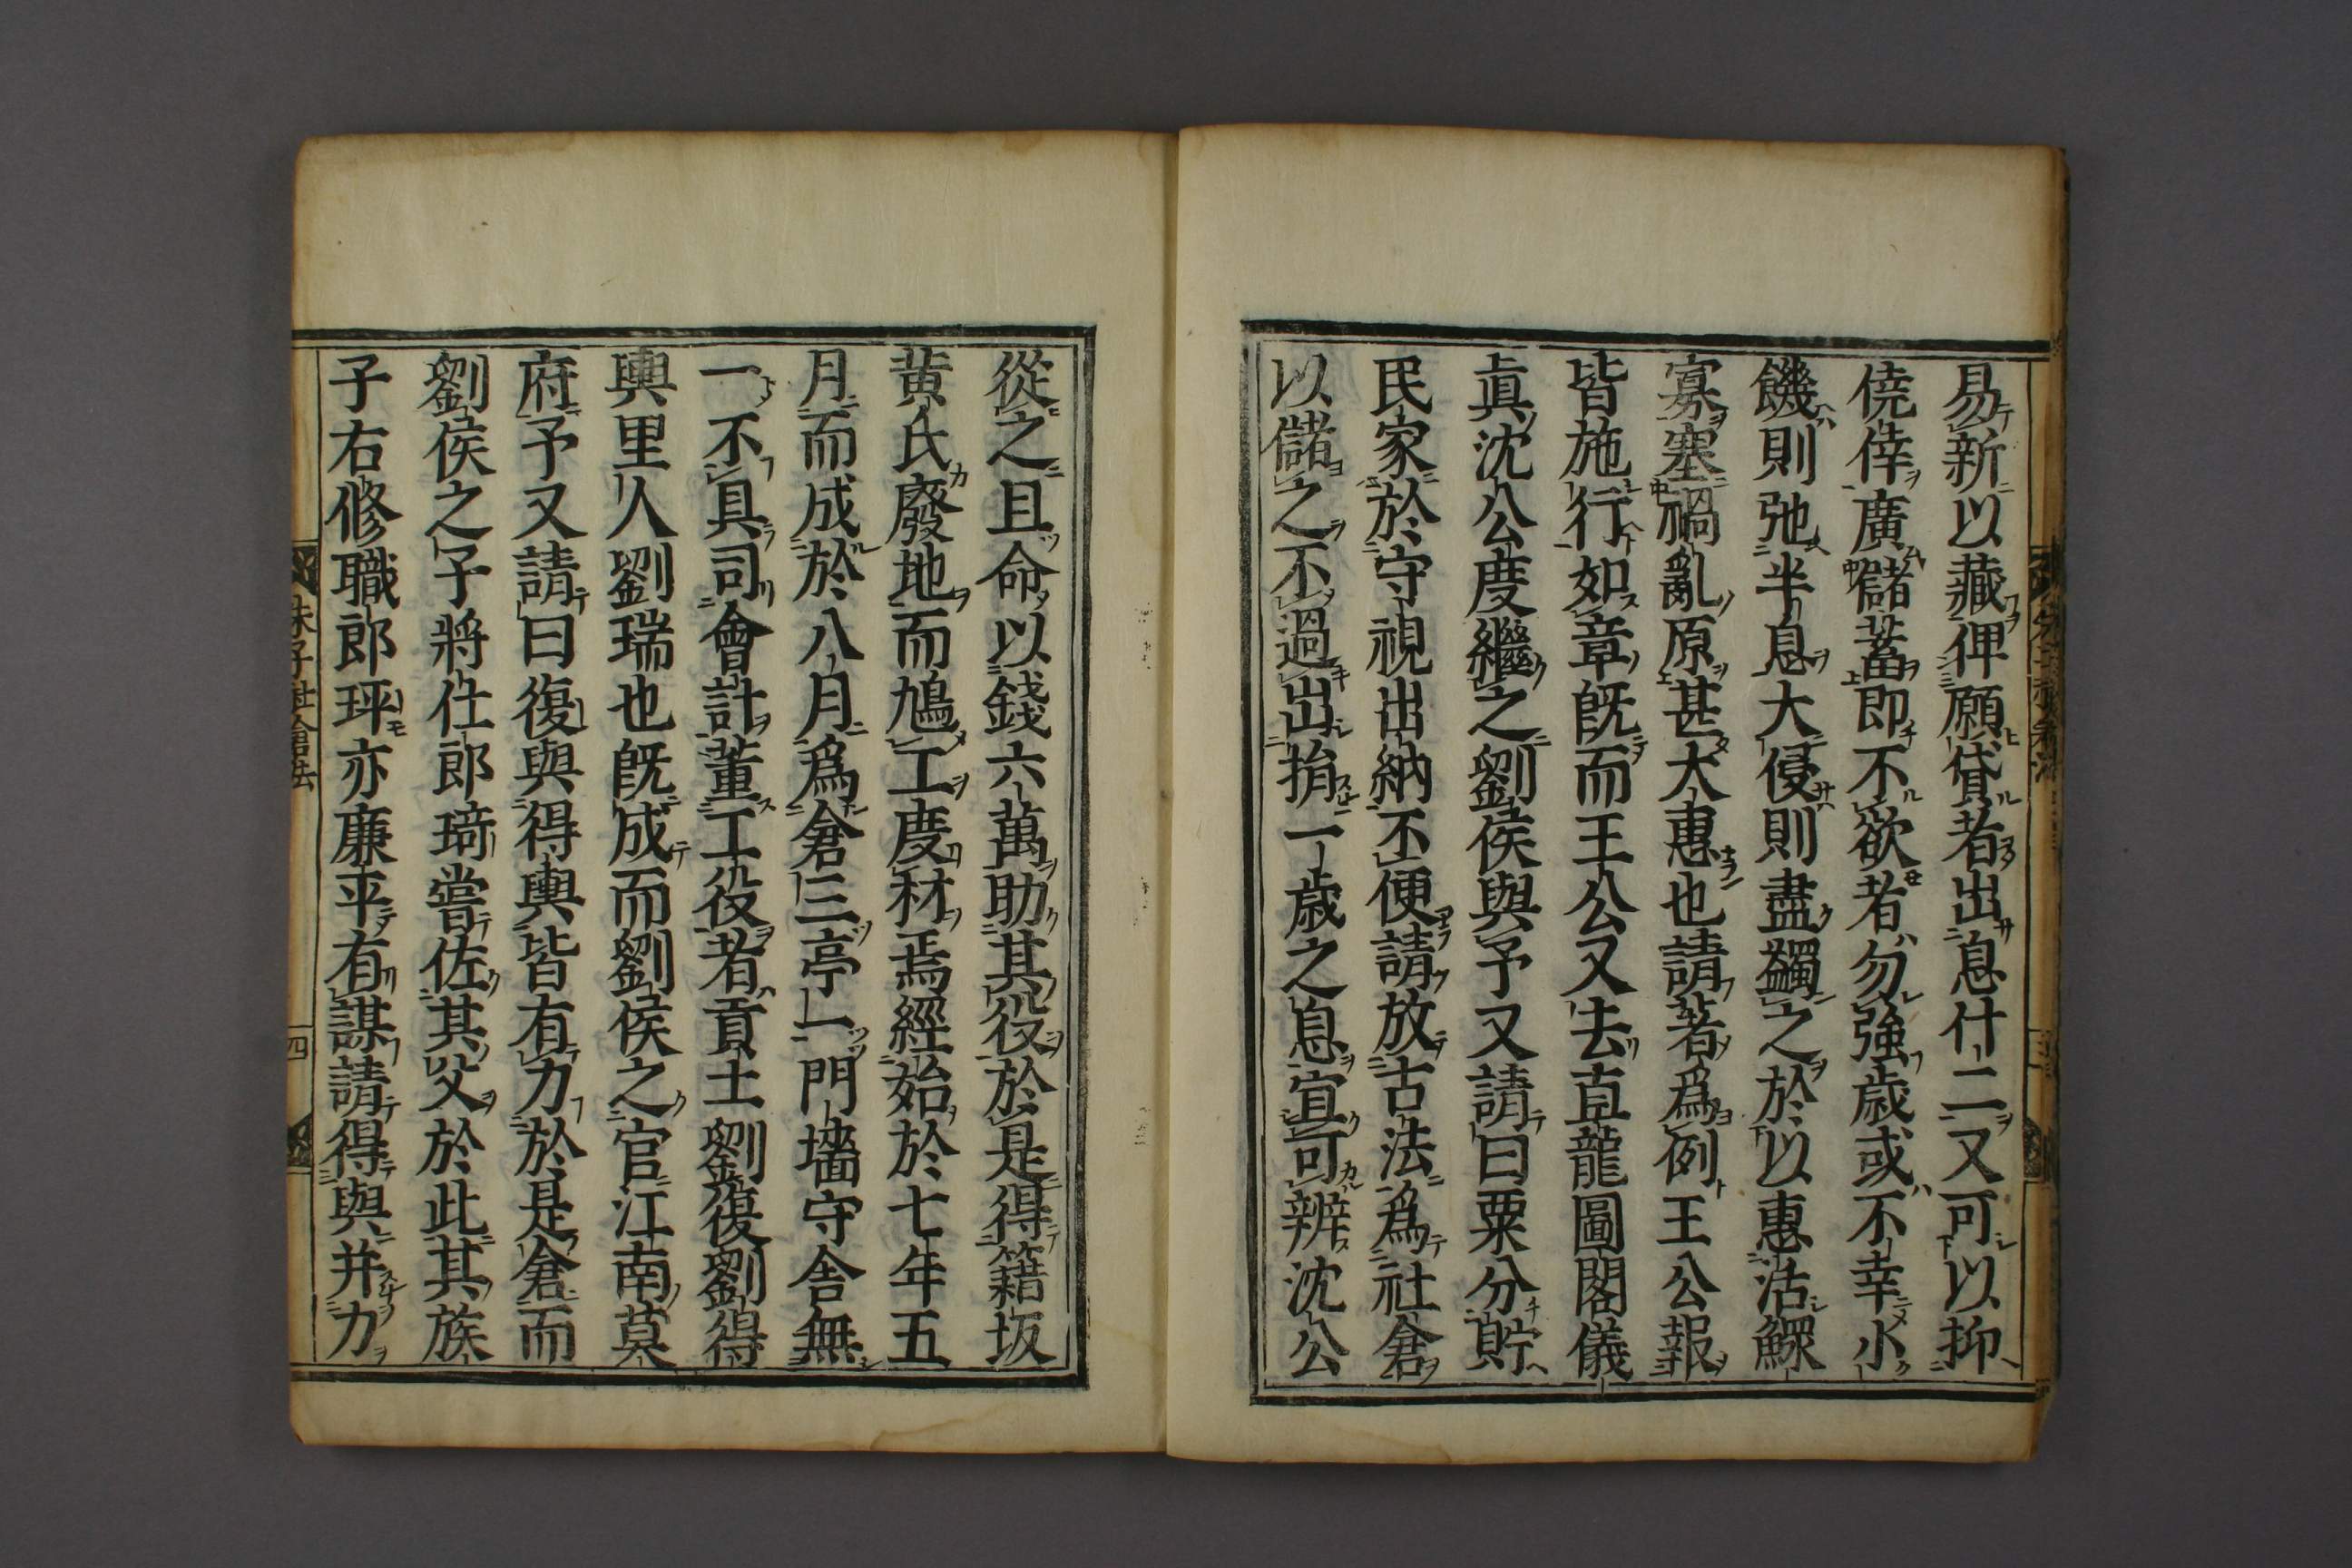 易新以藏俾願貸者出息什二又可以抑
僥倖廣儲蓄即不欲者勿強歲或不幸小
饑則弛半息大侵則盡蠲之於以惠活鰥
寡塞禍亂原甚大惠也請著爲例王公報
皆施行如章既而王公又去直龍圖閣儀
眞沈公度繼之劉侯與予又請曰粟分貯
民家於守視出納不便請放古法爲社倉
以儲之不過出捐一歲之息宜可辨沈公
從之且命以錢六萬助其役於是得籍坂
黄氏廢地而鳩工度材焉經始於七年五
月而成於八月爲倉三亭一門墻守舍無
一不具司會計董工役者貢士劉復劉得
輿里人劉瑞也既成而劉侯之官江南莫
府予又請曰復與得輿皆有力於是倉而
劉侯之子將仕郎琦嘗佐其父於此其族
子右修職郎玶亦廉平有謀請得與并力
朱子社倉法
四